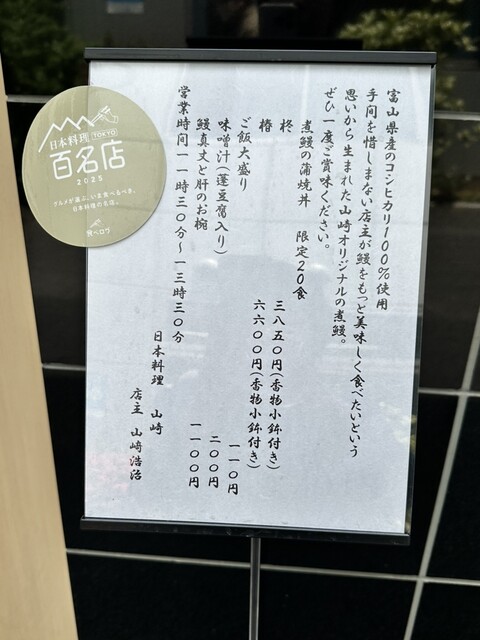 富山県産のコシヒカリ100%使用
手間を惜しまない店主が鰻をもっと美味しく食べたいという
思いから生まれた山崎オリジナルの煮鰻。
ぜひ一度ご賞味ください。
煮鰻の蒲焼丼　限定20食
柊　三八五〇円(香物小鉢付き)
椿　六六〇〇円(香物小鉢付き)
ご飯大盛り　一一〇円
味噌汁(蓬豆腐入り)　二〇〇円
鰻真丈と肝のお椀　一一〇〇円
営業時間一一時三〇分～一三時三〇分
日本料理　山崎
店主　山﨑浩治
日本料理 TOKYO
百名店
2025
グルメが選ぶ、いま食べるべき、
日本料理の名店。
食べログ